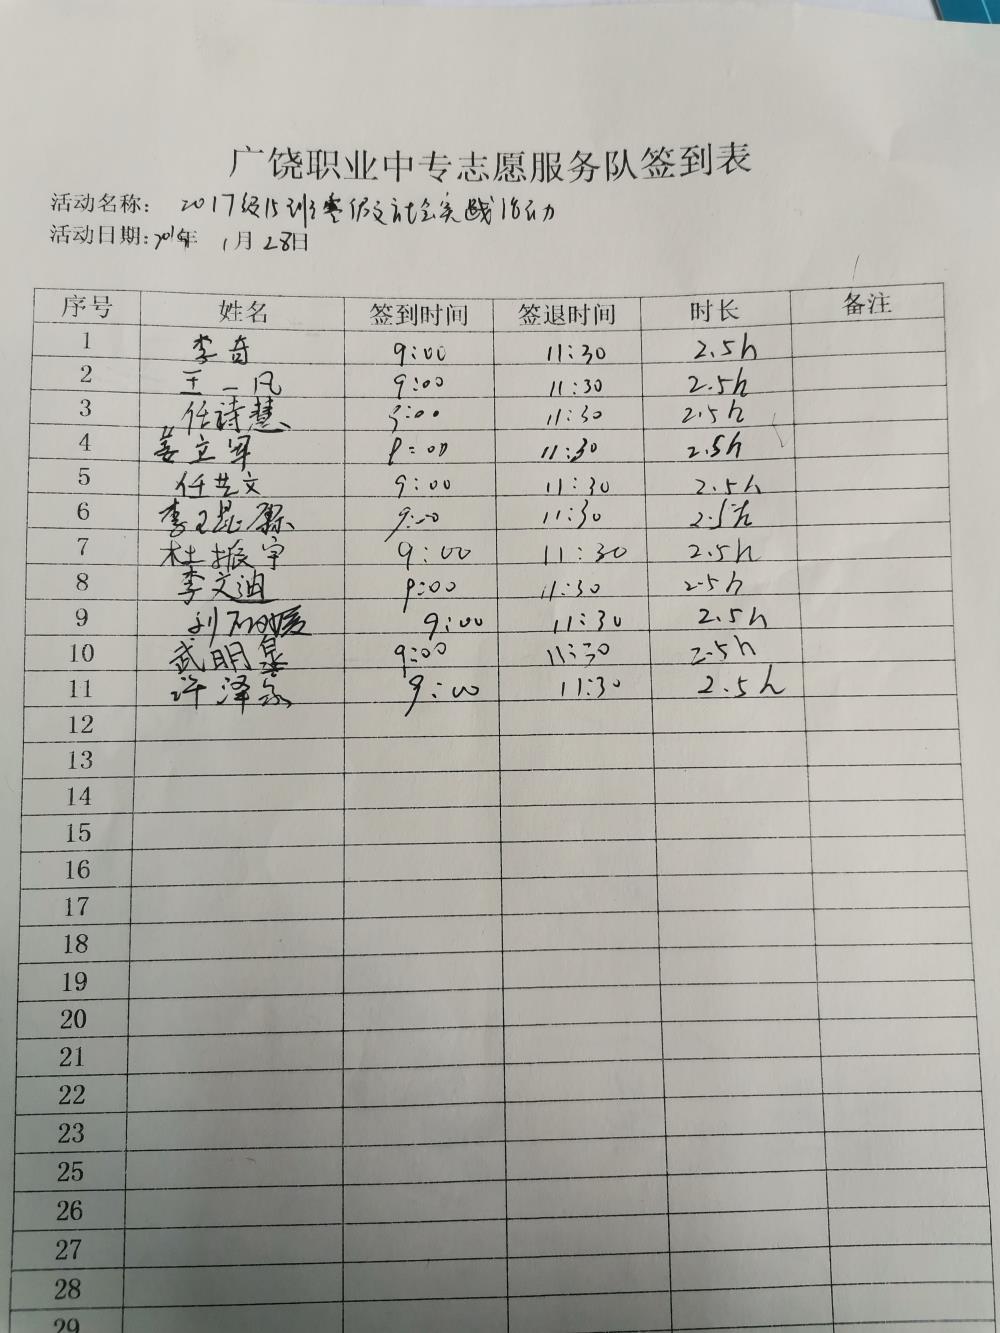 广饶职业中专志愿服务队签到表
活动名称: 2017级15班寒假社会实践活动
活动日期: 2019年 1月28日
序号 姓名 签到时间 签退时间 时长 备注
1 李奇 9:00 11:30 2.5h
2 王一凡 9:00 11:30 2.5h
3 任诗慧 9:00 11:30 2.5h
4 姜立军 9:00 11:30 2.5h
5 任艺文 9:00 11:30 2.5h
6 李 9:00 11:30 2.5h
7 杜振宇 9:00 11:30 2.5h
8 李文迪 9:00 11:30 2.5h
9 9:00 11:30 2.5h
10 武明 9:00 11:30 2.5h
11 许泽 9:00 11:30 2.5h
12
13
14
15
16
17
18
19
20
21
22
23
25
26
27
28
29